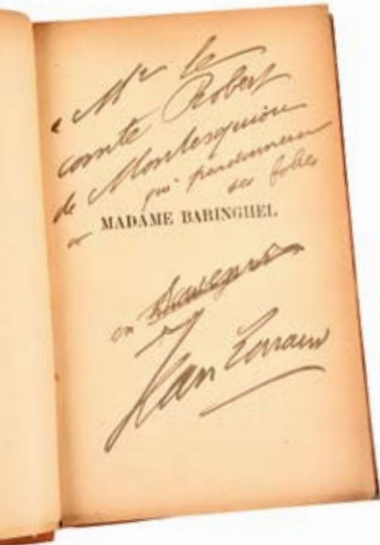 à Mr le
comte Robert
de Montesquiou
qui pardonnera
ses folies
à MADAME BARINGHEL
en
Jean Lorrain